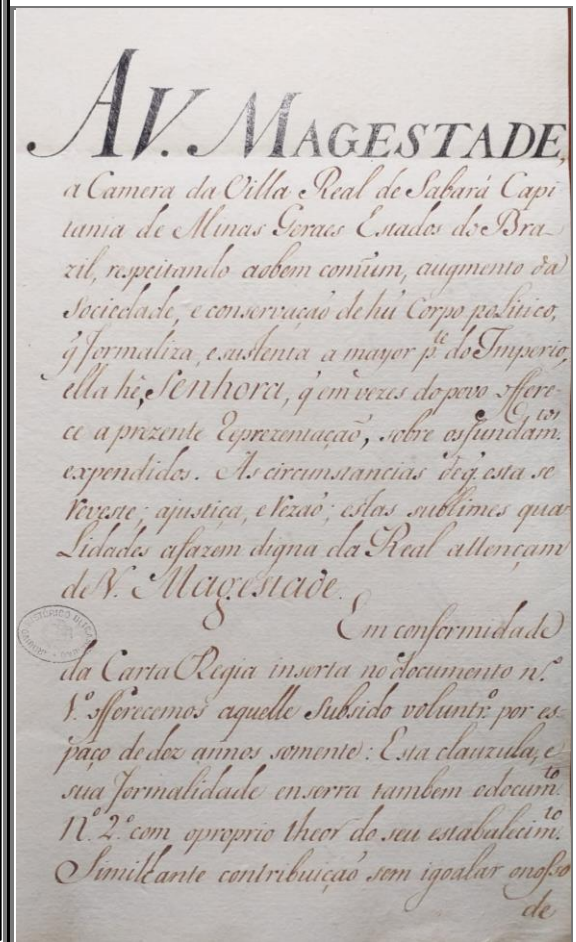 A V. MAGESTADE,
a Camera da Villa Real de Sabará Capi
tania de Minas Geraes Estados do Bra-
zil, respeitando aobem comũm, augmento da
Sociedade, e conservação de hũ Corpo politico,
q̃ formaliza, e sustenta a mayor p.te do Imperio,
ella hé, Senhora, q̃ em vezes do povo offere-
ce a prezente Reprezentação, sobre os fundam.tos
expendidos. As circunstancias de q̃ esta se
reveste; a justiça, e rezaõ; estas sublimes qua-
Lidades a fazem digna da Real attençam
de V. Magestade.
Em conformidade
da Carta Regia inserta no documento n.º
1.º offerecemos aquelle Subsido voluntr.º por es-
paço de dez annos somente: Esta clauzula, e
sua formalidade enserra tambem o docum.to
N.º 2.º com o proprio theor do seu estabalecim.to
Similhante contribuiçaõ sem igoalar o nosso
de
HISTÓRICO ULTRA